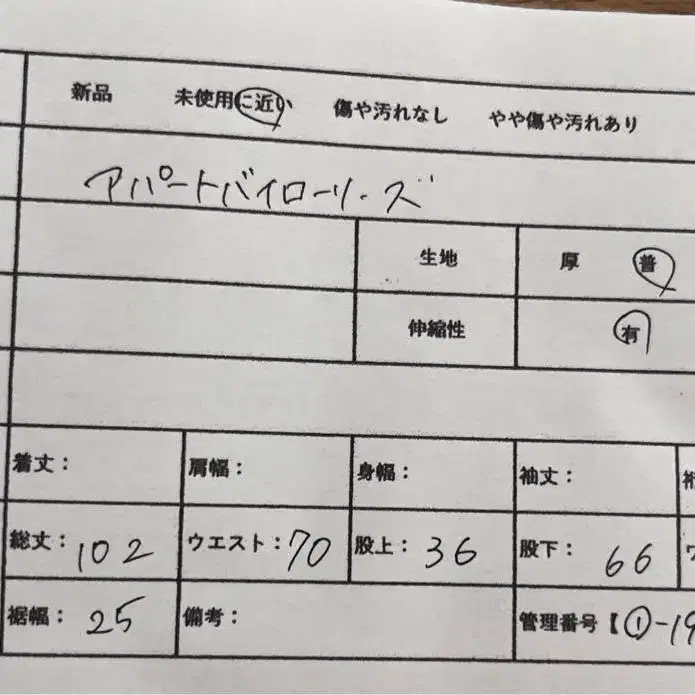 新品 未使用に近い 傷や汚れなし やや傷や汚れあり
アパートバイローリーズ
生地 厚 普
伸縮性 有
着丈： 肩幅： 身幅： 袖丈： 裄
総丈：102 ウエスト：70 股上：36 股下：66 ワ
裾幅：25 備考： 管理番号【①-19